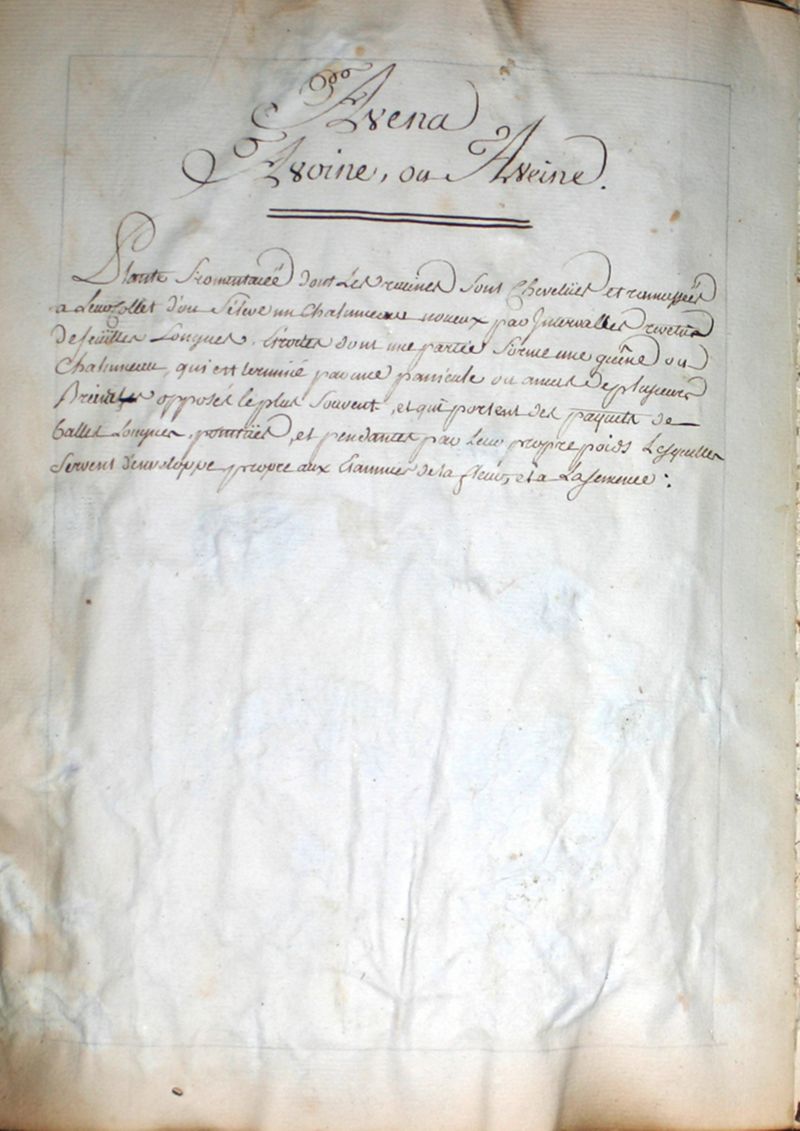 Avena
Avoine, ou Aveine.
Plante fromentacée dont Les racines sont Chevelües et ramassées
a Leur Collet d'ou s'éleve un Chalumeau noueux par Intervalles revetu
de feüilles Longues, Etroites dont une partie forme une guêne au
Chalumeau, qui est terminé par une panicule ou amas de plusieurs
Brins opposés le plus souvent, et qui portent des paquets de
balles Longues, pointües, et pendantes par Leur propre poids Lesquelles
servent d'enveloppe propre aux Etamines de la fleur, et a La semence :.